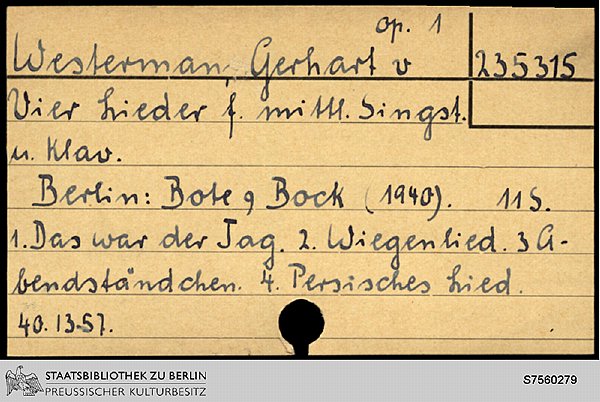 op. 1
Westerman, Gerhart v
235315
Vier Lieder f. mittl. Singst.
u. Klav.
Berlin: Bote & Bock (1940). 11 S.
1. Das war der Tag. 2. Wiegenlied. 3 A-
bendständchen. 4. Persisches Lied.
40. 1357.
STAATSBIBLIOTHEK ZU BERLIN
PREUSSISCHER KULTURBESITZ
S7560279